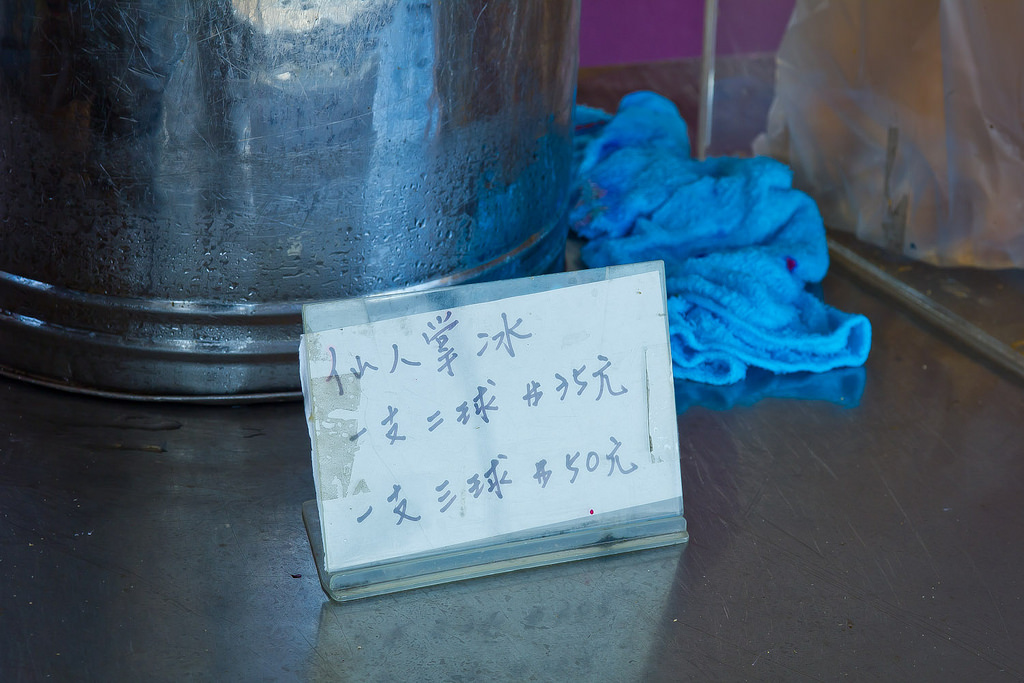 仙人掌冰
一支二球 #35元
一支三球 #50元